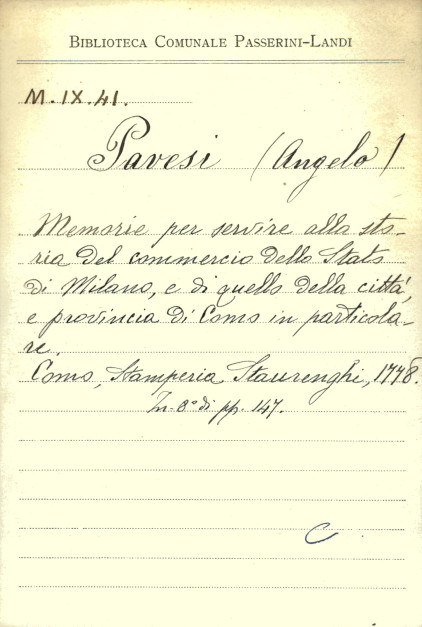 BIBLIOTECA COMUNALE PASSERINI-LANDI
M. IX. 41.
Pavesi (Angelo)
Memorie per servire alla sto-
ria del commercio dello Stato
di Milano, e di quello della città,
e provincia di Como in particola-
re.
Como, Stamperia Staurenghi, 1778.
In-8° di pp. 147.
C